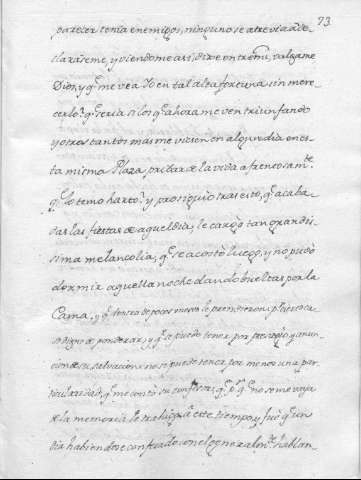 73
parecer tenia enemigos, ninguno se atrevia a de-
clararseme, y viendome asi, dixe entre mi, valgame
Dios, y q.e me vea Yo en tal alta fortuna sin mere-
cerlo? q.e seria si los q.e ahora me ven triunfando
y otros tantos mas me viesen en algun dia en es-
ta misma Plaza privar de la vida afrentosam.te
q.e lo temo harto? y prosiguio tras esto, q.e acaba-
das las fiestas de aquel dia, le cargo tan grandis-
sima melancolia, q.e se acosto luego, y no pudo
dormir aquella noche dando bueltas por la
Cama, y q.e dentro de pocos meses le prendieron
digno de ponderar, y q.e se puede tener por presagio, y anun-
cio de su salvacion, no se puede tener por menos una par-
ticularidad, q.e me conto su confesor, q.e p.r q.e no se me vaya
de la memoria le traslado a este tiempo, y fue q.e un
dia habiendose confesado con el general.te hablan-